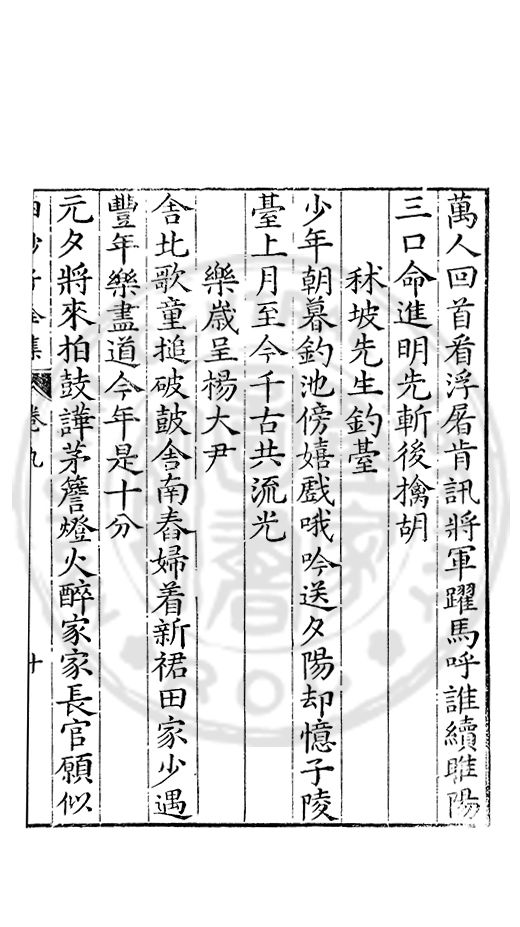 萬人回首看浮屠肯訊將軍躍馬呼誰續睢陽
三口命進明先斬後擒胡
秫坡先生釣臺
少年朝暮釣池傍嬉戲哦吟送夕陽却憶子陵
臺上月至今千古共流光
樂歲呈楊大尹
舍北歌童搥破皷舍南舂婦着新裙田家少遇
豐年樂盡道今年是十分
元夕將來拍鼓譁茅簷燈火醉家家長官願似
白沙子全集 卷九 十